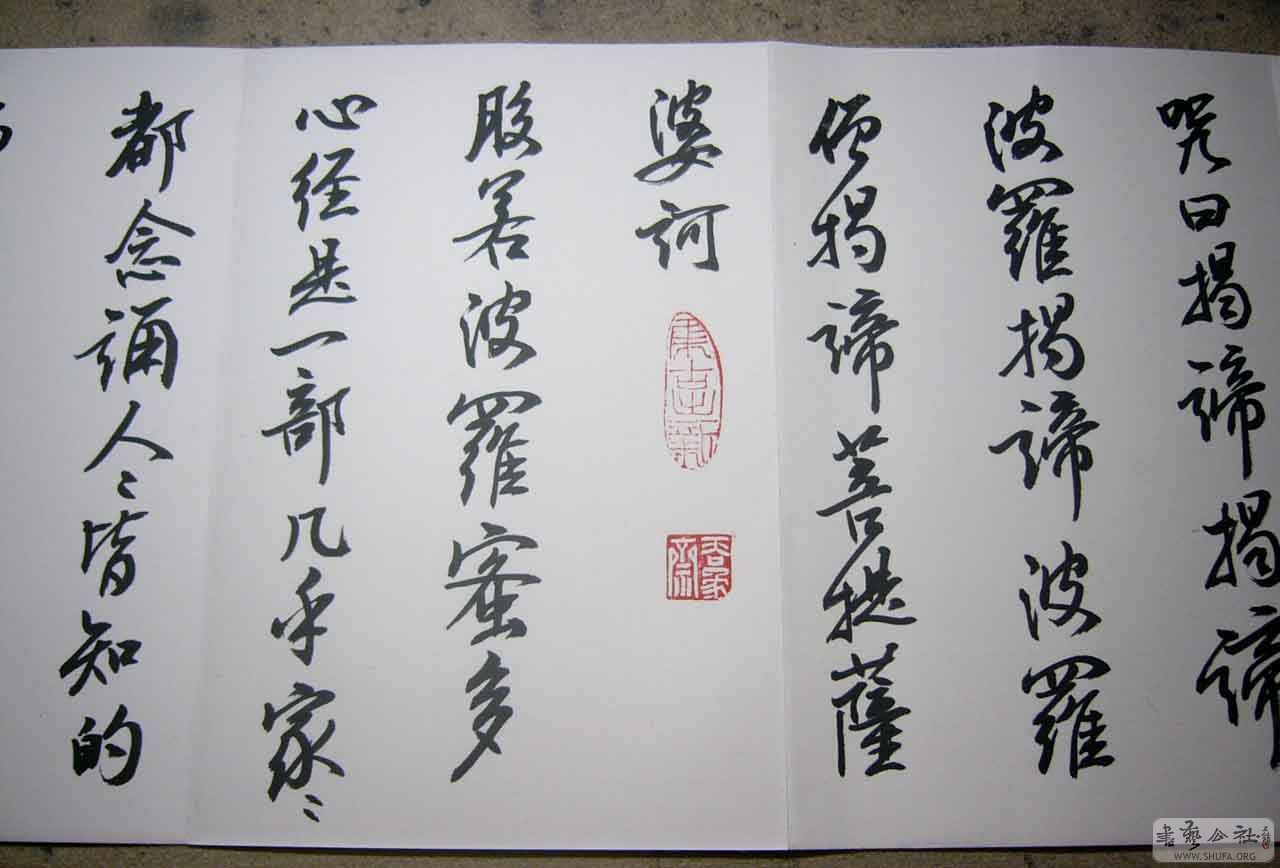 咒曰揭諦揭諦
波羅揭諦波羅
僧揭諦菩提薩
婆訶
般若波羅蜜多
心经是一部几乎家〻
都念誦人〻皆知的
書藝公社
WWW.SHUFA.ORG